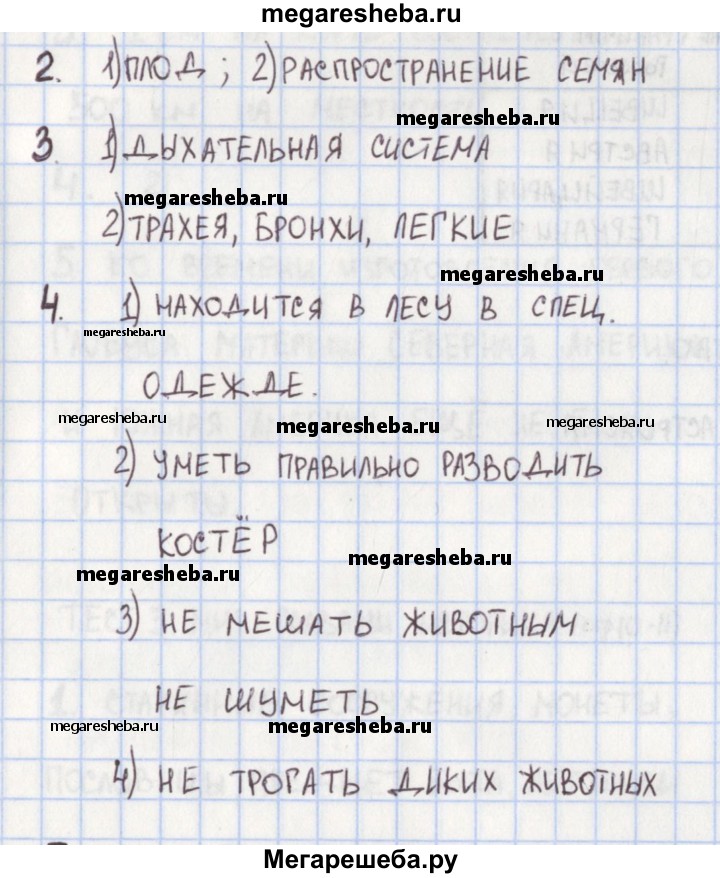 megaresheba.ru
2. 1) ПЛОД ; 2) РАСПРОСТРАНЕНИЕ СЕМЯН
megaresheba.ru
3. 1) ДЫХАТЕЛЬНАЯ СИСТЕМА
megaresheba.ru
2) ТРАХЕЯ, БРОНХИ, ЛЕГКИЕ
megaresheba.ru
4. 1) НАХОДИТСЯ В ЛЕСУ В СПЕЦ.
megaresheba.ru
ОДЕЖДЕ.
megaresheba.ru megaresheba.ru megaresheba.ru
2) УМЕТЬ ПРАВИЛЬНО РАЗВОДИТЬ
КОСТЁР
megaresheba.ru
megaresheba.ru
3) НЕ МЕШАТЬ ЖИВОТНЫМ
НЕ ШУМЕТЬ
megaresheba.ru megaresheba.ru megaresheba.ru
4) НЕ ТРОГАТЬ ДИКИХ ЖИВОТНЫХ
Мегарешеба.ру